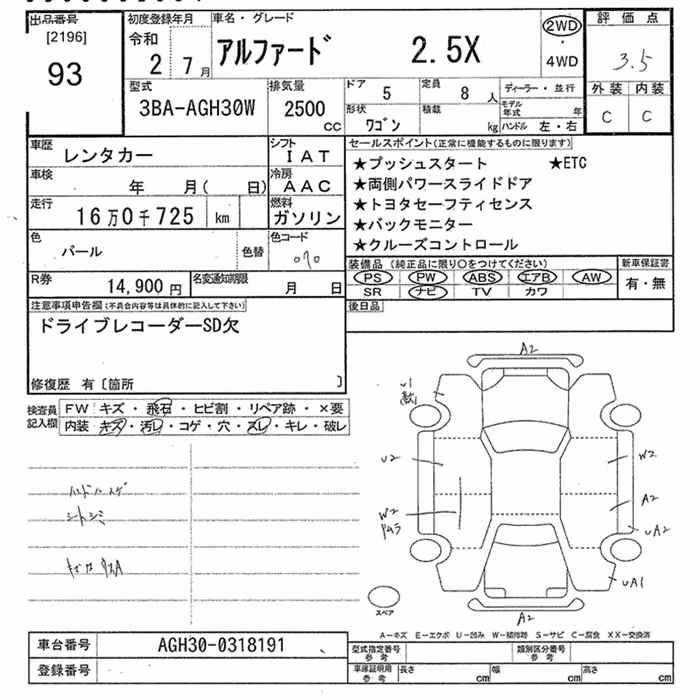 出品番号
[2196]
93
初度登録年月
令和
2 7月
車名・グレード
アルファード 2.5X
2WD
・
4WD
評価点
3.5
外装 内装
C C
型式
3BA-AGH30W
排気量
2500
CC
ドア
5
定員
8人
形状
ワゴン
積載
kg
ディーラー・並行
モデル年式 年
ハンドル 左・右
車歴
レンタカー
シフト
IAT
車検
年 月( 日)
冷房
AAC
走行
16万0千725 km
燃料
ガソリン
色
パール
色替
色コード
070
R券
14,900円
名変通知期限
月 日
セールスポイント(正常に機能するものに限ります)
★プッシュスタート ★ETC
★両側パワースライドドア
★トヨタセーフティセンス
★バックモニター
★クルーズコントロール
装備品(純正品に限り○をつけてください)
PS PW ABS エアB AW
SR ナビ TV カワ
新車保証書
有・無
後日品
注意事項申告欄(不具合内容等は具体的に記入して下さい)
ドライブレコーダーSD欠
修復歴 有〔箇所 〕
検査員
記入欄
FW キズ・飛石・ヒビ割・リペア跡・×要
内装 キズ・汚レ・コゲ・穴・スレ・キレ・破レ
ハンドルスレ
シートシミ
A2
U1
U2
W2
W2
A2
UA2
UA1
A2
スペア
A-キズ E-エクボ U-凹み W-補修跡 S-サビ C-腐食 XX-交換済
車台番号
AGH30-0318191
登録番号
型式指定番号
参考
類別区分番号
参考
車庫証明用
参考
長さ cm
幅 cm
高さ cm